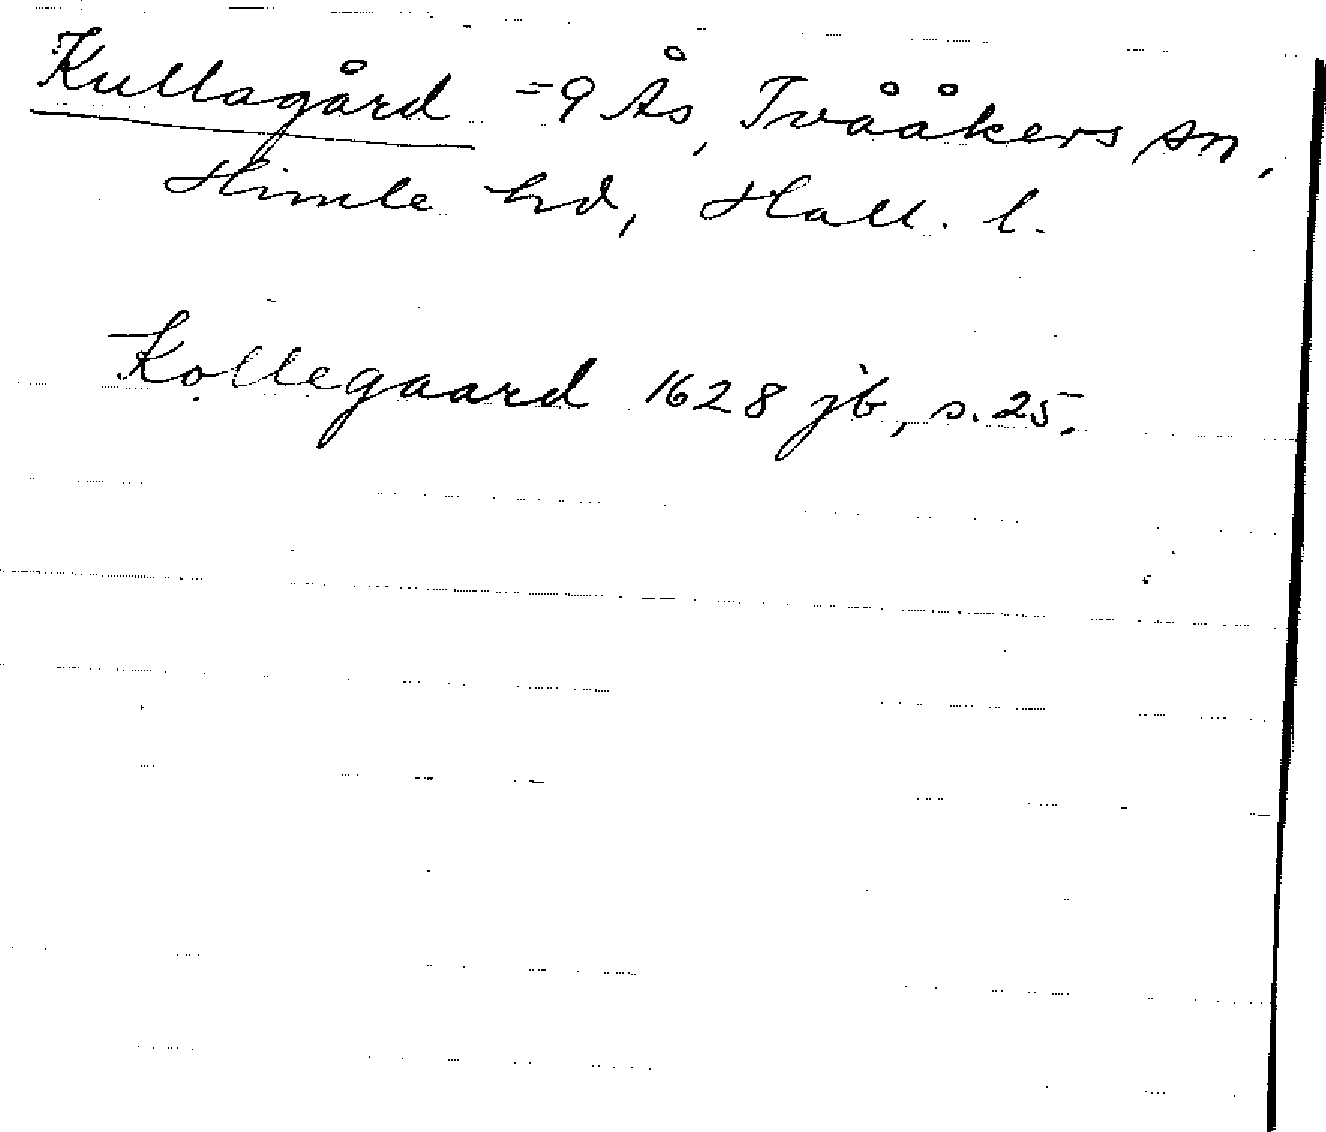 Kullagård =9 Ås, Tvååkers sn,
Himle hd, Hall. l.
Kollegaard 1628 jb, s. 25.